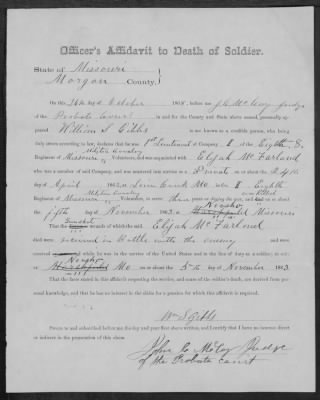 Officer's Affidavit to Death of Soldier.
State of Missouri
Morgan County.
On this 16th day of October 1865, before me John C McCoy Judge
of the Probate Court in and for the County and State above named, personally ap-
peared William S Gibbs to me known as a credible person, who being
duly sworn according to law, declares that he was 1st Lieutenant of Company E of the Eighth, 8,
Militia Cavalry
Regiment of Missouri Volunteers, and was acquainted with Elijah McFarland
who was a member of said Company, and was mustered into service as a Private on the 24th
day of April 1862, at Linn Creek Mo, in E Eighth
Militia Cavalry
Regiment of Missouri Volunteers, to serve three years, or during the war, and was Killed
Neosho
fifth day of November 1863, at Missouri
gunshot
wounds of which the said Elijah McFarland
died were received in Battle with the enemy and were
received while he was in the service of the United States and in the line of duty as a soldier, to wit:
Neosho
at Mo on or about the 5th day of November 1863
That the facts stated in this affidavit respecting the service, and cause of the soldier's death, are derived from per-
sonal knowledge, and that he has no interest in the claim for a pension for which this affidavit is required.
Wm S Gibbs
Sworn to and subscribed before me the day and year first above written, and I certify that I have no interest direct
or indirect in the prosecution of this claim.
John C McCoy Judge
of the Probate Court